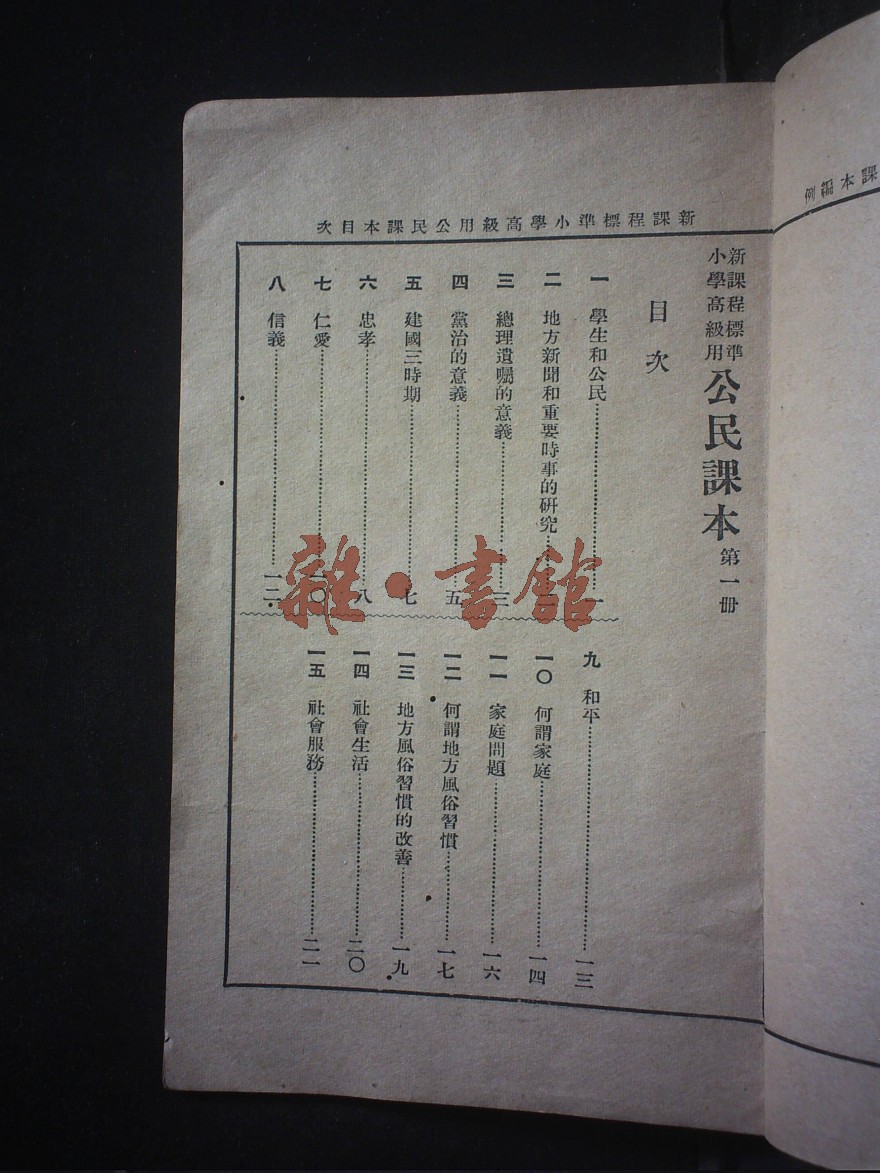 課本編例
新課程標準小學高級用公民課本目次
新課程標準
小學高級用
公民課本 第一冊
目次
一 學生和公民……一
二 地方新聞和重要時事的研究……
三 總理遺囑的意義……三
四 黨治的意義……五
五 建國三時期……七
六 忠孝……八
七 仁愛……一〇
八 信義……一二
九 和平……一三
一〇 何謂家庭……一四
一一 家庭問題……一六
一二 何謂地方風俗習慣……一七
一三 地方風俗習慣的改善……一九
一四 社會生活……二〇
一五 社會服務……二一
雜·書館